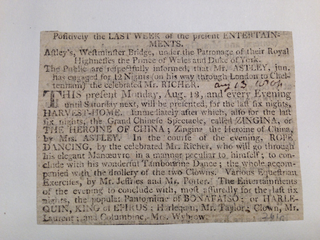 Positively the LAST WEEK of the present ENTERTAIN-
MENTS.
Astley's, Westminster Bridge, under the Patronage of their Royal
Highnesses the Prince of Wales and Duke of York.
The Public are respectfully informed, that Mr. ASTLEY, jun.
has engaged for 12 Nights (on his way through London to Chel-
tenham) the celebrated Mr. RICHER.
Aug 13
THIS present Monday, Aug. 13, and every Evening
until Saturday next, will be presented, for the last six nights,
HARVEST-HOME. Immediately after which, also for the last
six nights, the Grand Chinese Spectacle, called ZINGINA, or
THE HEROINE OF CHINA; Zingina the Heroine of China,
by Mrs. ASTLEY. In the course of the evening, ROPE
DANCING, by the celebrated Mr. Richer, who will go through
his elegant Manœuvres in a manner peculiar to himself; to con-
clude with his wonderful Tambourine Dance; the whole accom-
panied with the drollery of the two Clowns. Various Equestrian
Exercises, by Mr. Jeffries and Mr. Porter. The Entertainments
of the evening to conclude with, most assuredly for the last six
nights, the popular Pantomime of or HARLE-
QUIN, KING of EPIRUS: Harlequin, Mr. Taylor; Clown, Mr.
Laurent; and Columbine, Mrs. Wybrow.